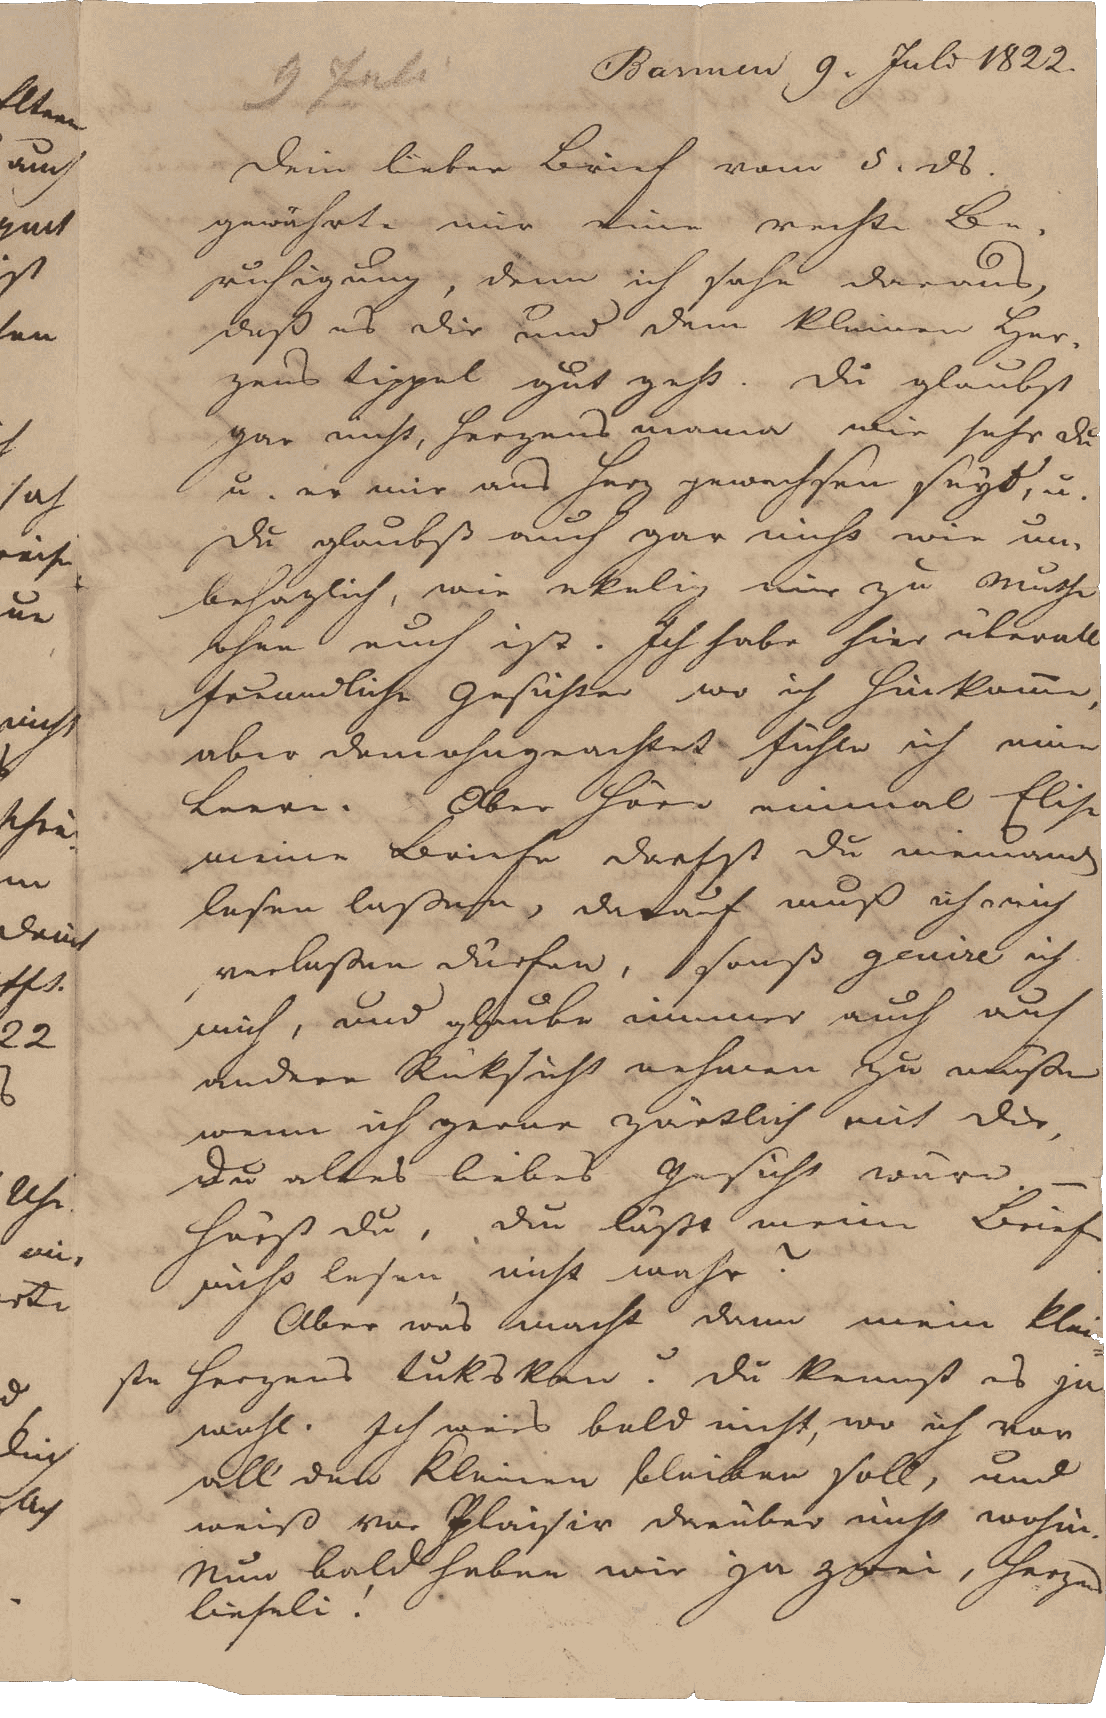 9 Juli
Barmen 9. Juli 1822.
Dein lieber Brief vom 5. ds.
gewährte mir eine rechte Be-
ruhigung, denn ich sehe daraus,
daß es Dir und dem kleinen Her-
zens tippel gut geht. Du glaubst
gar nicht, Herzens mama wie sehr Du
u. er mir ans Herz gewachsen seyd, u.
Du glaubst auch gar nicht wie un-
behaglich, wie ekelig mir zu Muthe
ohne euch ist. Ich habe hier überall
freundliche Gesichter wo ich hinkome,
aber demohngeachtet fühle ich eine
Leere. Aber höre einmal Elise
meine Briefe darfst Du niemand
lesen laßen, darauf muß ich mich
verlaßen dürfen, sonst genire ich
mich, und glaube immer auch auf
andere Rüksicht nehmen zu müßen
wenn ich gerne zärtlich mit Dir,
Du altes liebes Gesicht wäre. —
Hörst Du, Du läßt meine Briefe
nicht lesen, nicht wahr?
Aber was macht denn mein klein-
ste Herzens tuksken? Du kennst es ja
wohl. Ich weis bald nicht, wo ich vor
all' den kleinen bleiben soll, und
weiß vor Plaisir darüber nicht wohin.
Nun bald haben wir ja zwei, Herzens
lieseli!
Eltern
auch
ist
sah
nicht
22
Uhr